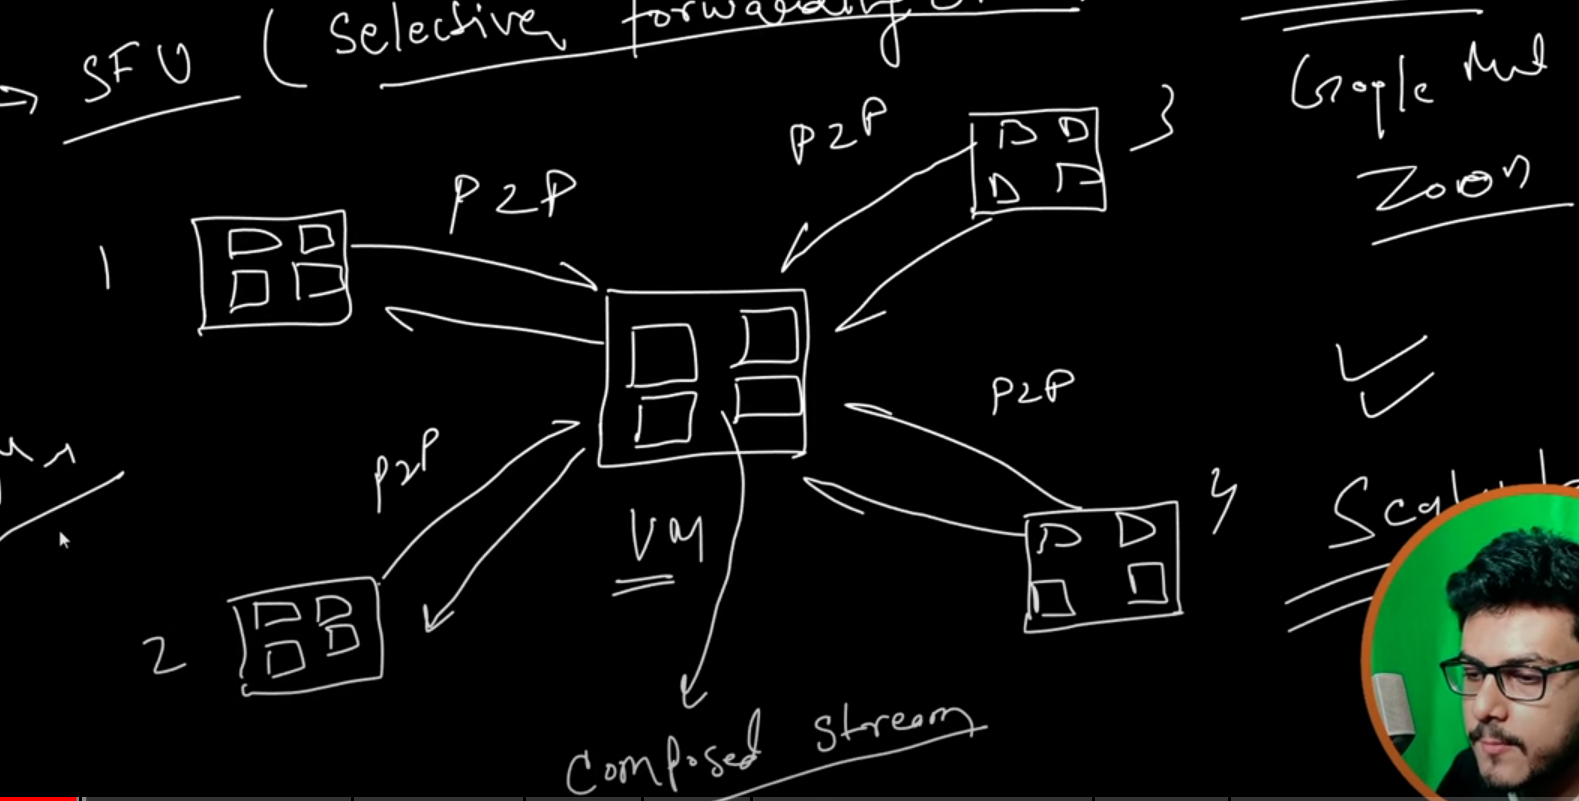 → SFU ( Selective forwarding
Google Meet
Zoom
P2P
3
D D
D D
P2P
1
P2P
P2P
VM
4
D D
2
Composed stream